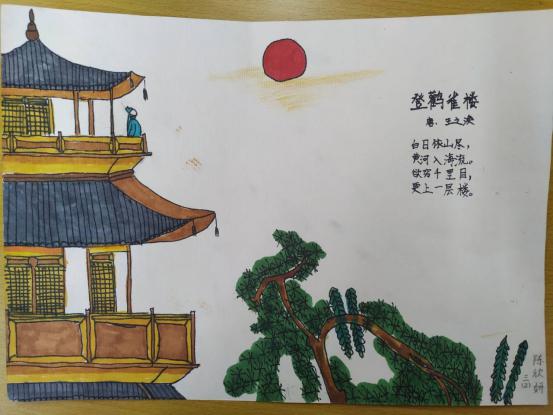 登鹳雀楼
唐、王之涣
白日依山尽，
黄河入海流。
欲穷千里目，
更上一层楼。
陈欣妍
三四